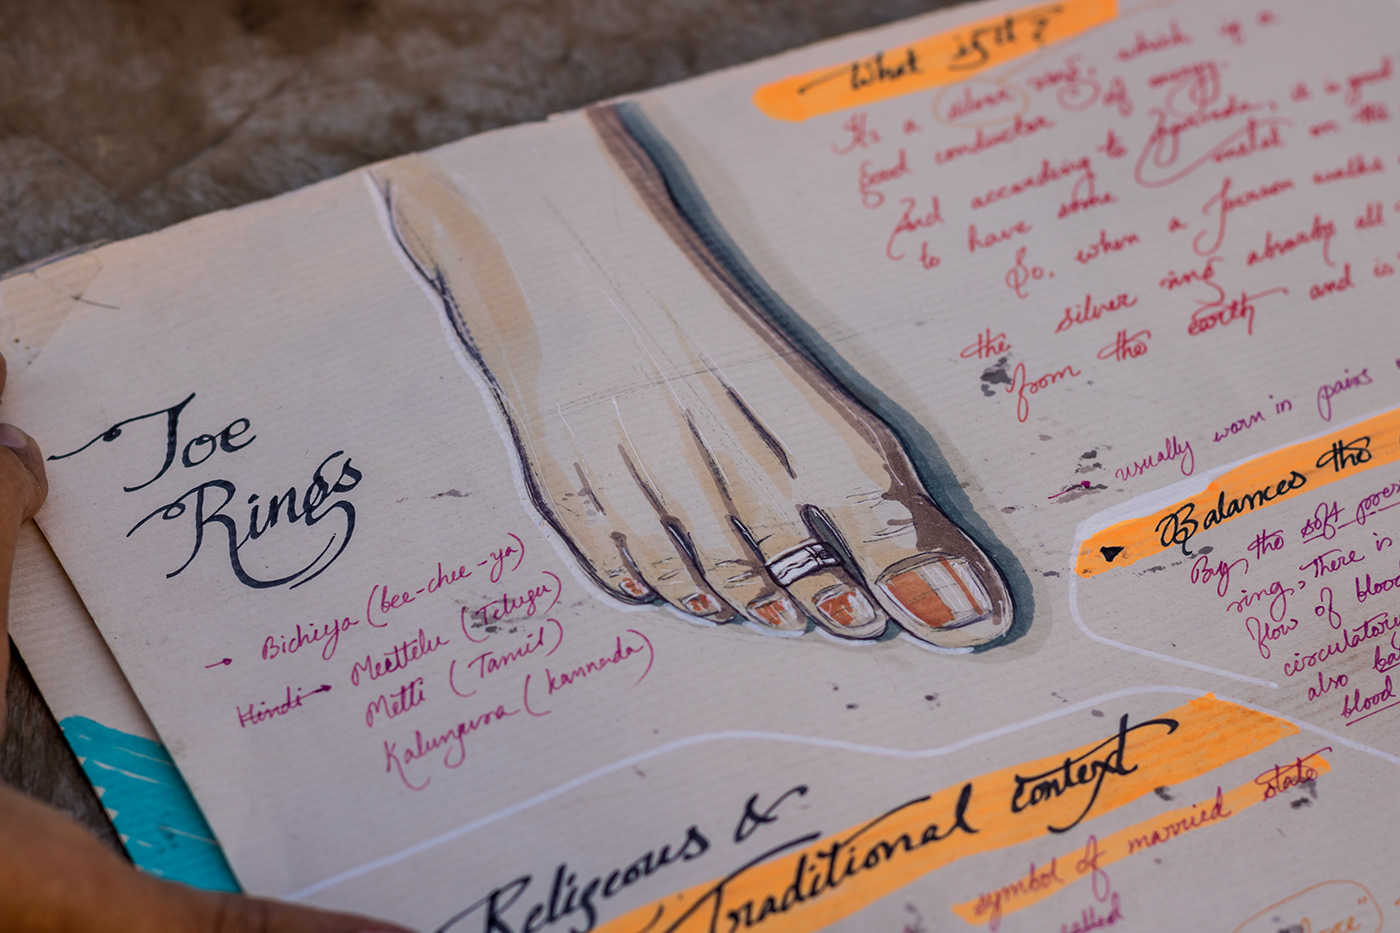 What is it?
It's a silver ring, which is a
good conductor of energy.
And according to Ayurveda, it is good
to have some metal on the
So, when a person walks
the silver ring absorbs all
from the earth and is
usually worn in pairs
Toe
Rings
→ Bichiya (bee-chee-ya)
Hindi → Meettelu (Telugu)
Metti (Tamil)
Kalungura (kannada)
Balances the
By, the soft
ring, there is
flow of blood
circulatory
also
blood
Religeous &
Traditional context
symbol of married state
called